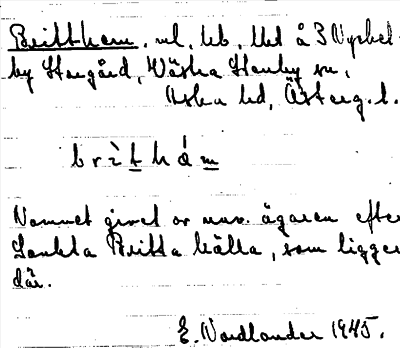 Britthem, nl, hb, Utl å 3 Nyckel-
by Storgård, Västra Stenby sn,
Aska hd, Österg. l.
britham
Namnet givet av nuv. ägaren efter
Sankta Britta källa, som ligger
där.
E. Nordlander 1945.